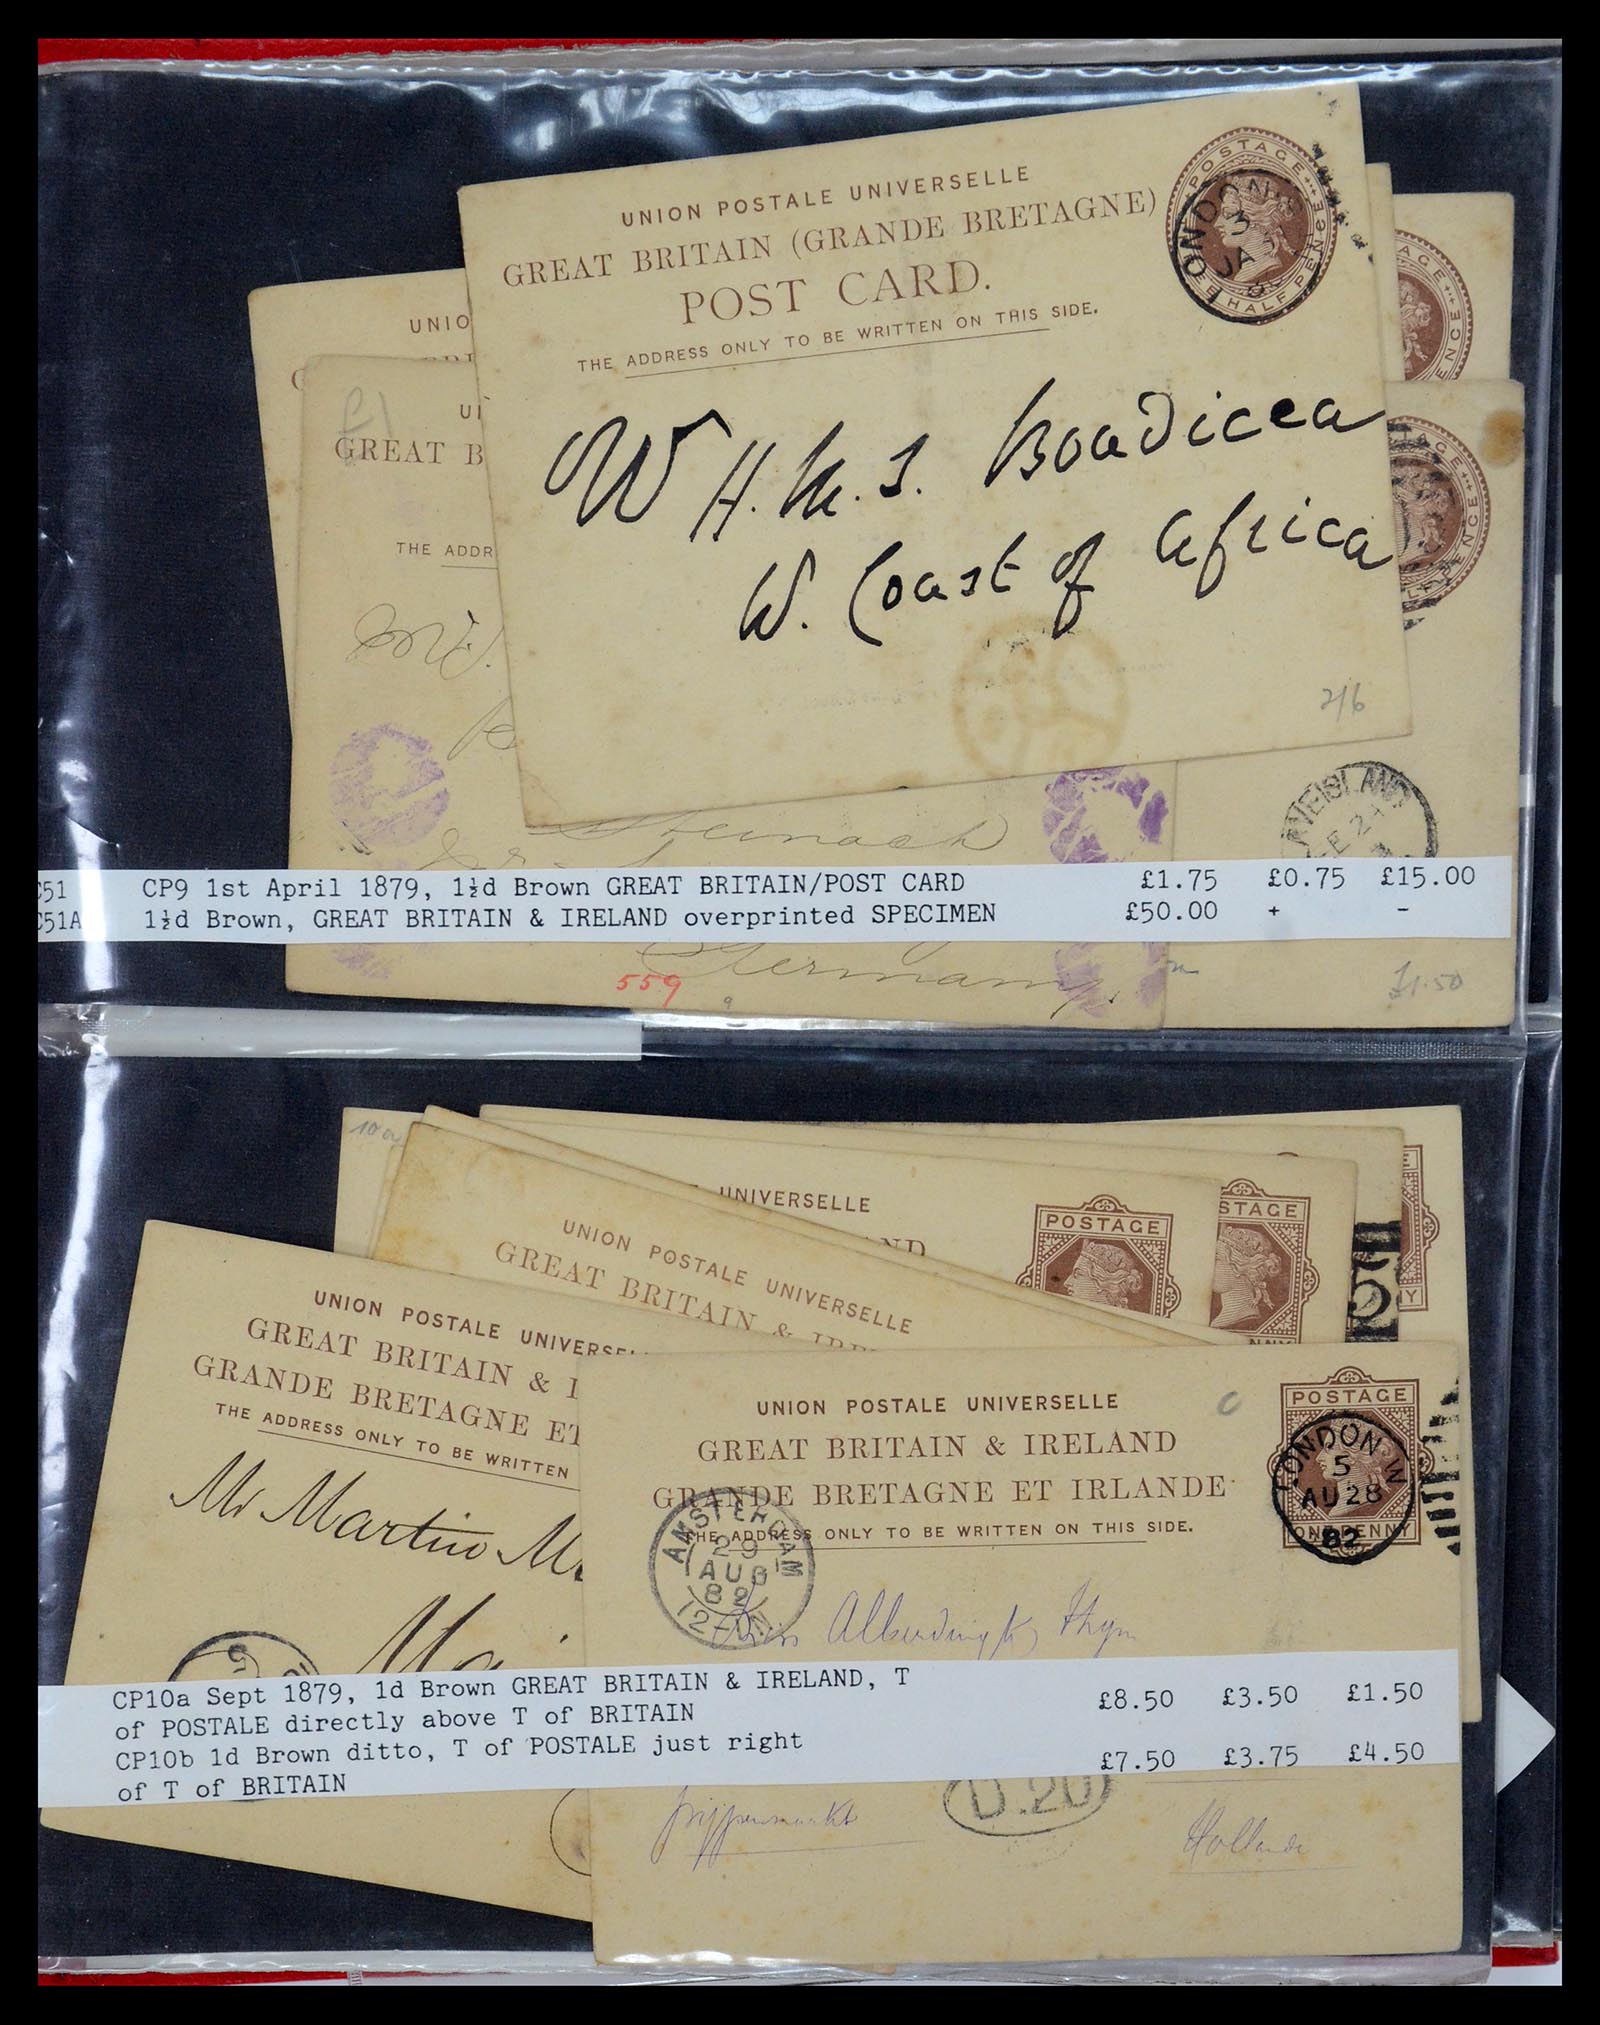 UNION POSTALE UNIVERSELLE
GREAT BRITAIN (GRANDE BRETAGNE)
POST CARD.
THE ADDRESS ONLY TO BE WRITTEN ON THIS SIDE.
POSTAGE
HALF PENCE
LONDON
3
JA
W H.M.S. Boadicea
W. Coast of Africa
2/6
UNIO
£1
GREAT B
THE ADDR
AGE
ENCE
AGE
PENCE
Steinach
C51 CP9 1st April 1879, 1½d Brown GREAT BRITAIN/POST CARD £1.75 £0.75 £15.00
C51A 1½d Brown, GREAT BRITAIN & IRELAND overprinted SPECIMEN £50.00 + -
Germany.
559
9
£1.50
UNIVERSELLE
AND
POSTAGE
STAGE
NNY
UNION POSTALE UNIVERSELLE
GREAT BRITAIN & IRE
UNION POSTALE UNIVERSE
GREAT BRITAIN & I
GRANDE BRETAGNE ET
THE ADDRESS ONLY TO BE WRITTEN
Mr Martino
UNION POSTALE UNIVERSELLE
GREAT BRITAIN & IRELAND
GRANDE BRETAGNE ET IRLANDE
THE ADDRESS ONLY TO BE WRITTEN ON THIS SIDE.
POSTAGE
ONE PENNY
LONDON W
5
AU 28
82
AMSTERDAM
29
AUG
82
Alberdingk Thym
CP10a Sept 1879, 1d Brown GREAT BRITAIN & IRELAND, T
of POSTALE directly above T of BRITAIN £8.50 £3.50 £1.50
CP10b 1d Brown ditto, T of POSTALE just right
of T of BRITAIN £7.50 £3.75 £4.50
D.20
Hollande